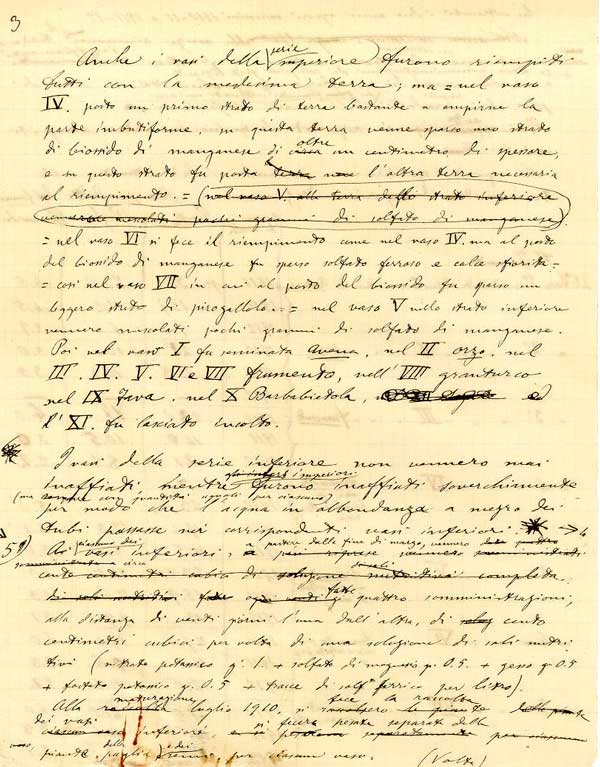 3
Anche i vasi della serie inferiore furono riempiti
tutti con la medesima terra; ma = nel vaso
IV. posto un primo strato di terra bastante a empirne la
parte imbutiforme, su questa terra venne sparso uno strato
di biossido di manganese di circa oltre un centimetro di spessore,
e su questo strato fu posta terra l'altra terra necessaria
al riempimento. = (nel vaso V. alla terra dello strato inferiore
vennero mescolati pochi grammi di solfato di manganese)
= nel vaso VI si fece il riempimento come nel vaso IV. ma al posto
del biossido di manganese fu sparso solfato ferroso e calce sfiorita =
= così nel vaso VII in cui al posto del biossido fu sparso un
leggero strato di pirogallolo. = nel vaso V nello strato inferiore
vennero mescolati pochi grammi di solfato di manganese.
Poi nel vaso I fu seminata Avena, nel II orzo, nel
III. IV. V. VI e VII frumento, nell'VIII granturco
nel IX Fava, nel X Barbabietola, e
l'XI. fu lasciato incolto.
I vasi della serie inferiore non vennero mai
inaffiati mentre gli superiori furono inaffiati soverchiamente
(ma sempre con quantità uguali per ciascuno)
per modo che l'acqua in abbondanza a mezzo dei
tubi passasse nei corrispondenti vasi inferiori.
5) Ai ciascuno dei vasi inferiori, a partire dalla fine di marzo, vennero
somministrati circa
cento centimetri cubici di soluzione nutritiva completa
di sali nutritivi fatte ogni venti quattro somministrazioni,
alla distanza di venti giorni l'una dall'altra, di cento
centimetri cubici per volta di una soluzione di sali nutri
tivi (nitrato potassico gr. 1. + solfato di magnesio gr. 0.5. + gesso gr. 0.5
+ fosfato potassico gr. 0.5 + tracce di solf° ferrico per litro).
Alla maturazione luglio 1910, si fece la raccolta
dei vasi inferiore, si fecero pesate separate delle
piante, della paglia e dei semi, per ciascun vaso. (Volta)